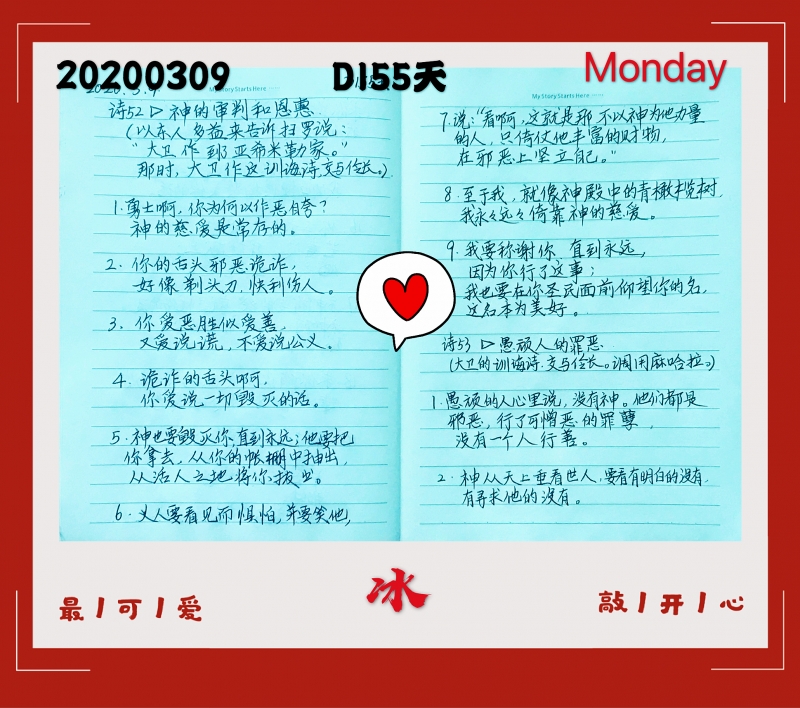 20200309
D155天
Monday
My Story Starts Here
诗52 ▷ 神的审判和恩惠
(以东人多益来告诉扫罗说:
"大卫作到亚希米勒家。"
那时,大卫作这训诲诗,交与伶长。)
1.勇士啊,你为何以作恶自夸?
神的慈爱是常存的。
2.你的舌头邪恶诡诈,
好像剃头刀,快利伤人。
3.你爱恶胜似爱善,
又爱说谎,不爱说公义。
4.诡诈的舌头啊,
你爱说一切毁灭的话。
5.神也要毁灭你,直到永远;他要把
你拿去,从你的帐棚中抽出,
从活人之地将你拔出。
6.义人要看见而惧怕,并要笑他,
My Story Starts Here
7.说:"看啊,这就是那不以神为他力量
的人,只倚仗他丰富的财物,
在邪恶上坚立自己。"
8.至于我,就像神殿中的青橄榄树,
我永永远远倚靠神的慈爱。
9.我要称谢你,直到永远,
因为你行了这事;
我也要在你圣民面前仰望你的名,
这名本为美好。
诗53 ▷ 愚顽人的罪恶
(大卫的训诲诗,交与伶长。调用麻哈拉。)
1.愚顽的人心里说,没有神。他们都是
邪恶,行了可憎恶的罪孽,
没有一个人行善。
2.神从天上垂看世人,要看有明白的没有,
有寻求他的没有。
最|可|爱
冰
敲|开|心